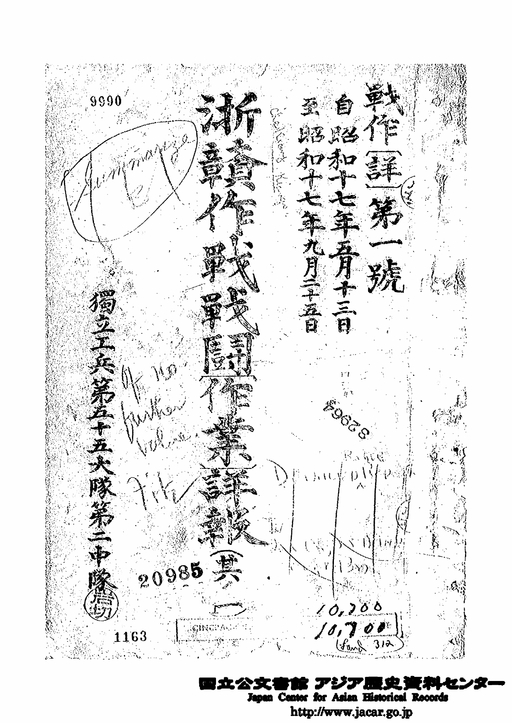 戦作〔詳〕第一號
自昭和十七年五月十三日
至昭和十七年九月三十五日
浙贛作戦戦闘〔作業〕詳報（其一
獨立工兵第五十五大隊第二中隊
9990
Summarize
of no
further
value
File
32964
20985
1163
10,700
10,700
国立公文書館 アジア歴史資料センター
Japan Center for Asian Historical Records
http://www.jacar.go.jp